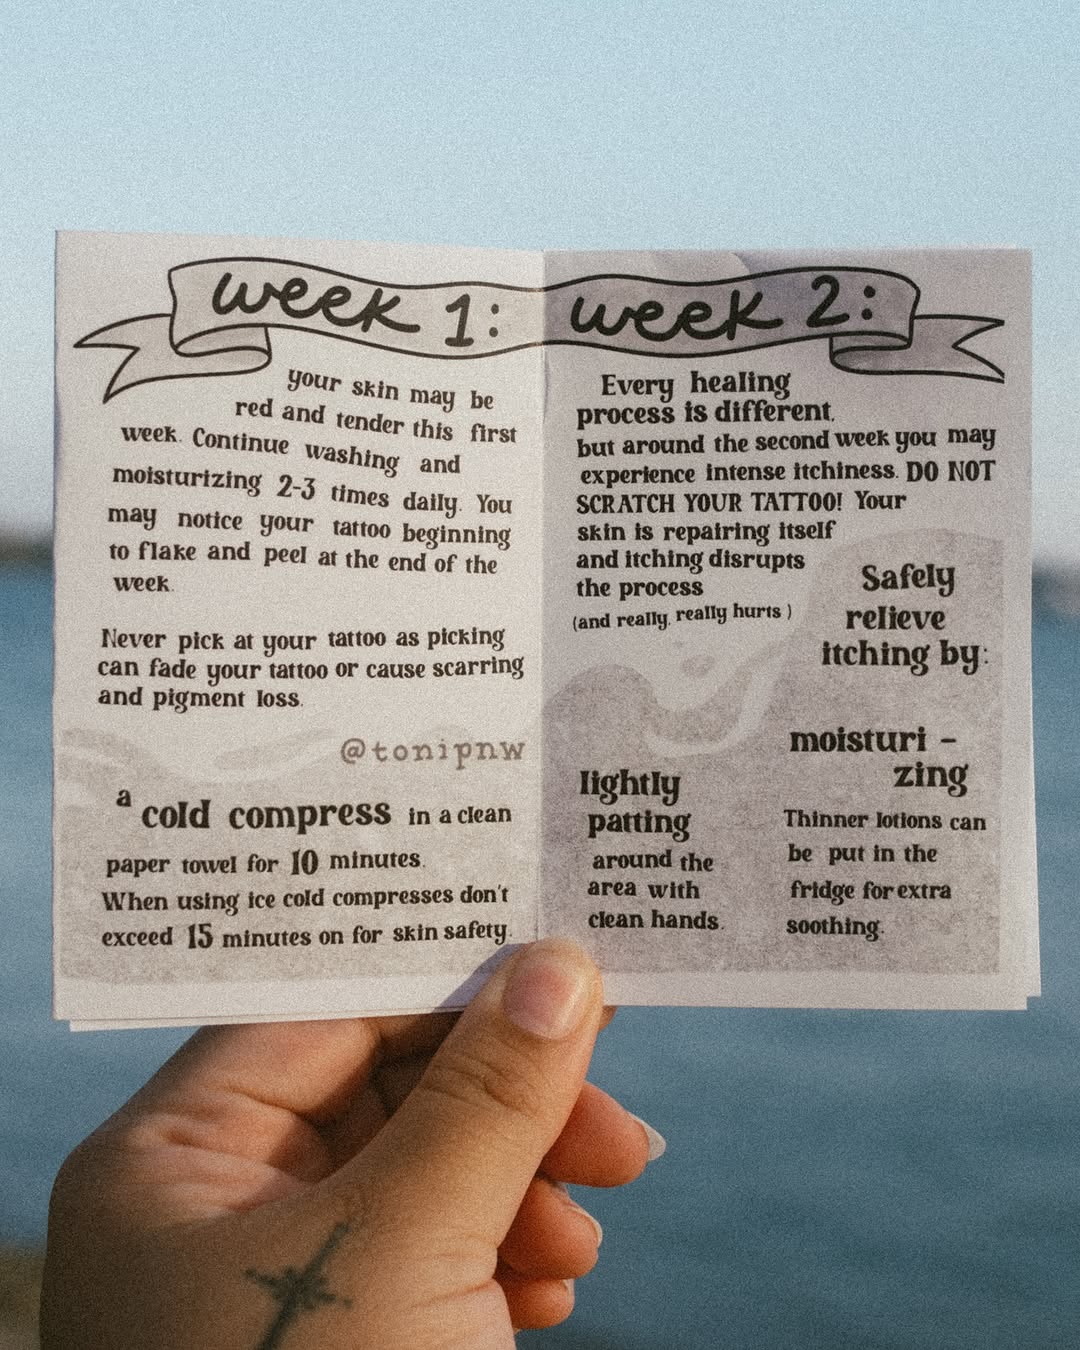 week 1:
your skin may be
red and tender this first
week. Continue washing and
moisturizing 2-3 times daily. You
may notice your tattoo beginning
to flake and peel at the end of the
week.
Never pick at your tattoo as picking
can fade your tattoo or cause scarring
and pigment loss.
@tonipnw
a cold compress in a clean
paper towel for 10 minutes.
When using ice cold compresses don't
exceed 15 minutes on for skin safety.
week 2:
Every healing
process is different,
but around the second week you may
experience intense itchiness. DO NOT
SCRATCH YOUR TATTOO! Your
skin is repairing itself
and itching disrupts
the process
(and really, really hurts )
Safely
relieve
itching by:
lightly
patting
around the
area with
clean hands.
moisturi -
zing
Thinner lotions can
be put in the
fridge for extra
soothing.